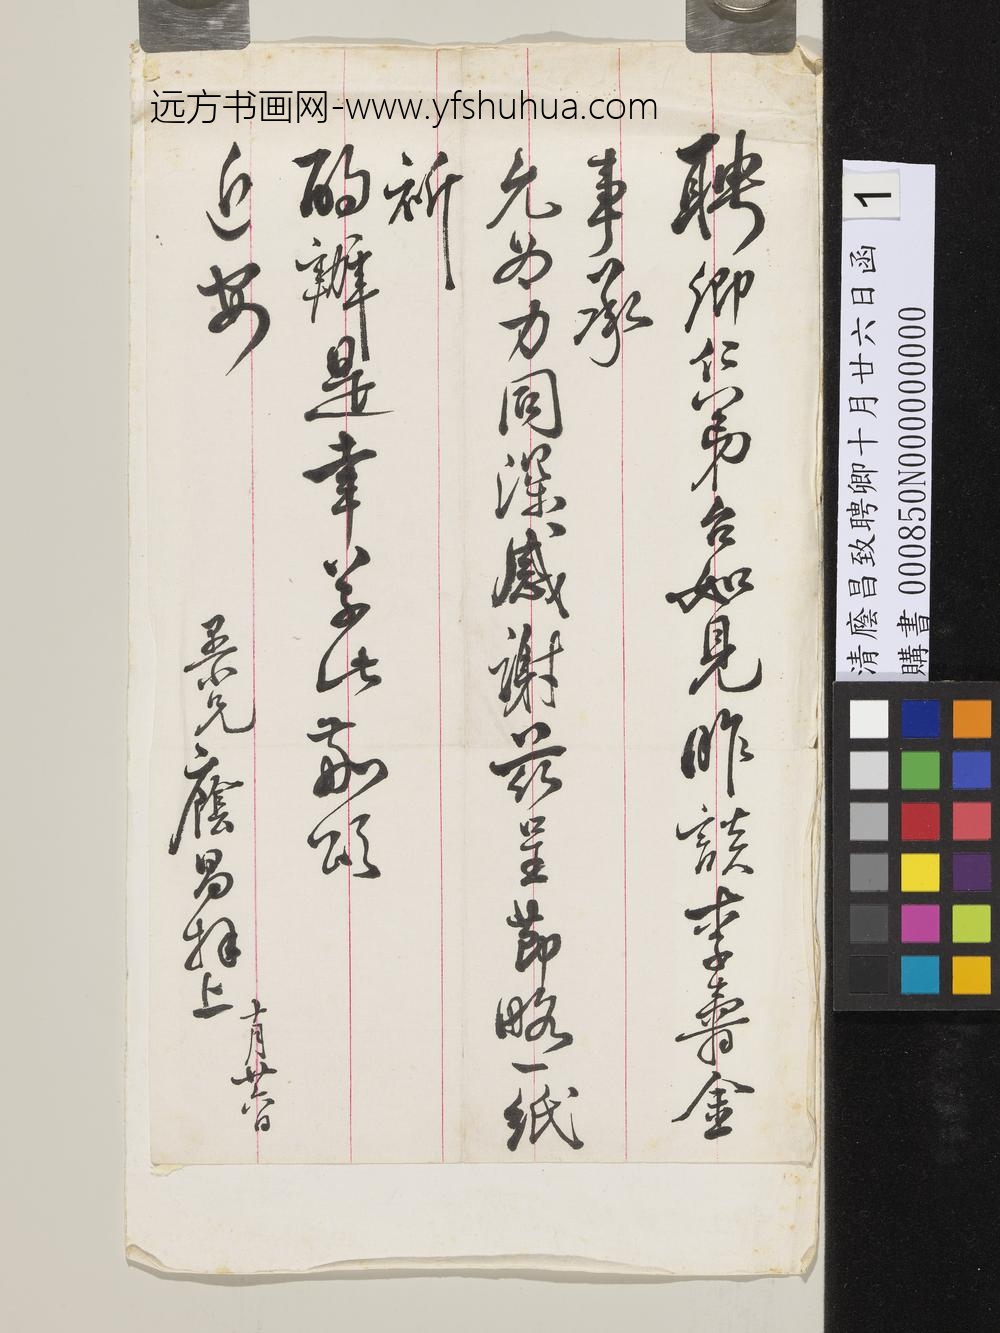 远方书画网-www.yfshuhua.com
聘卿仁弟台如見昨談李壽金
事承
允為力同深感謝茲呈節略一紙
祈
酌辦是幸草此敬頌
近安
愚兄廕昌拜上
十月廿六日
1
清廕昌致聘卿十月廿六日函
購書 000850N000000000